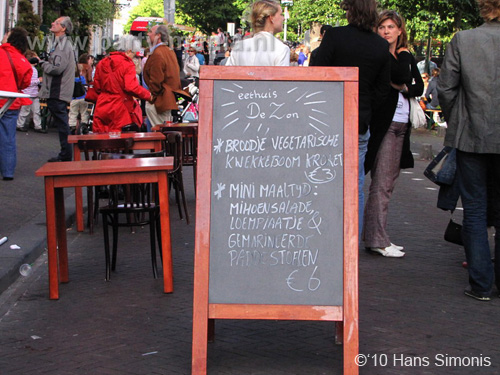 eethuis
De Zon
* BROODJE VEGETARISCHE
KWEKKEBOOM KROKET
€3
* MINI MAALTYD:
MIHOENSALADE,
LOEMPIAATJE &
GEMARINEERDE
PADDESTOELEN
€6
©'10 Hans Simonis